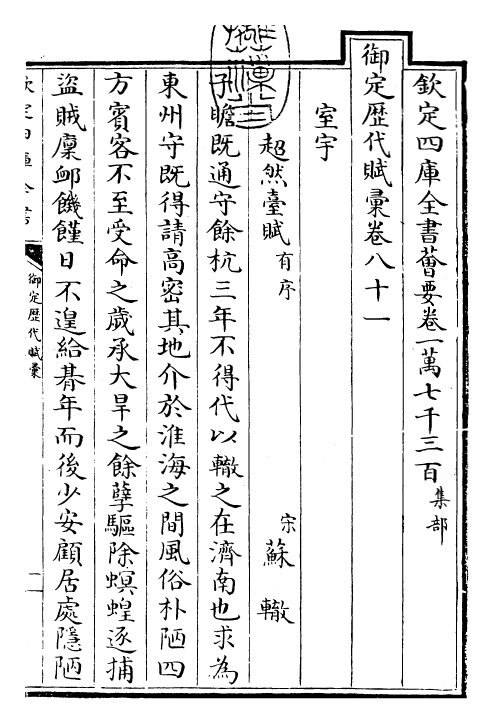 欽定四庫全書薈要卷一萬七千三百 集部
御定歷代賦彙卷八十一
室宇
超然臺賦 有序 宋 蘇轍
子瞻既通守餘杭三年不得代以轍之在濟南也求為
東州守既得請高密其地介於淮海之間風俗朴陋四
方賓客不至受命之歲承大旱之餘孽驅除螟蝗逐捕
盜賊廩卹饑饉日不遑給朞年而後少安顧居處隱陋
御定歷代賦彙